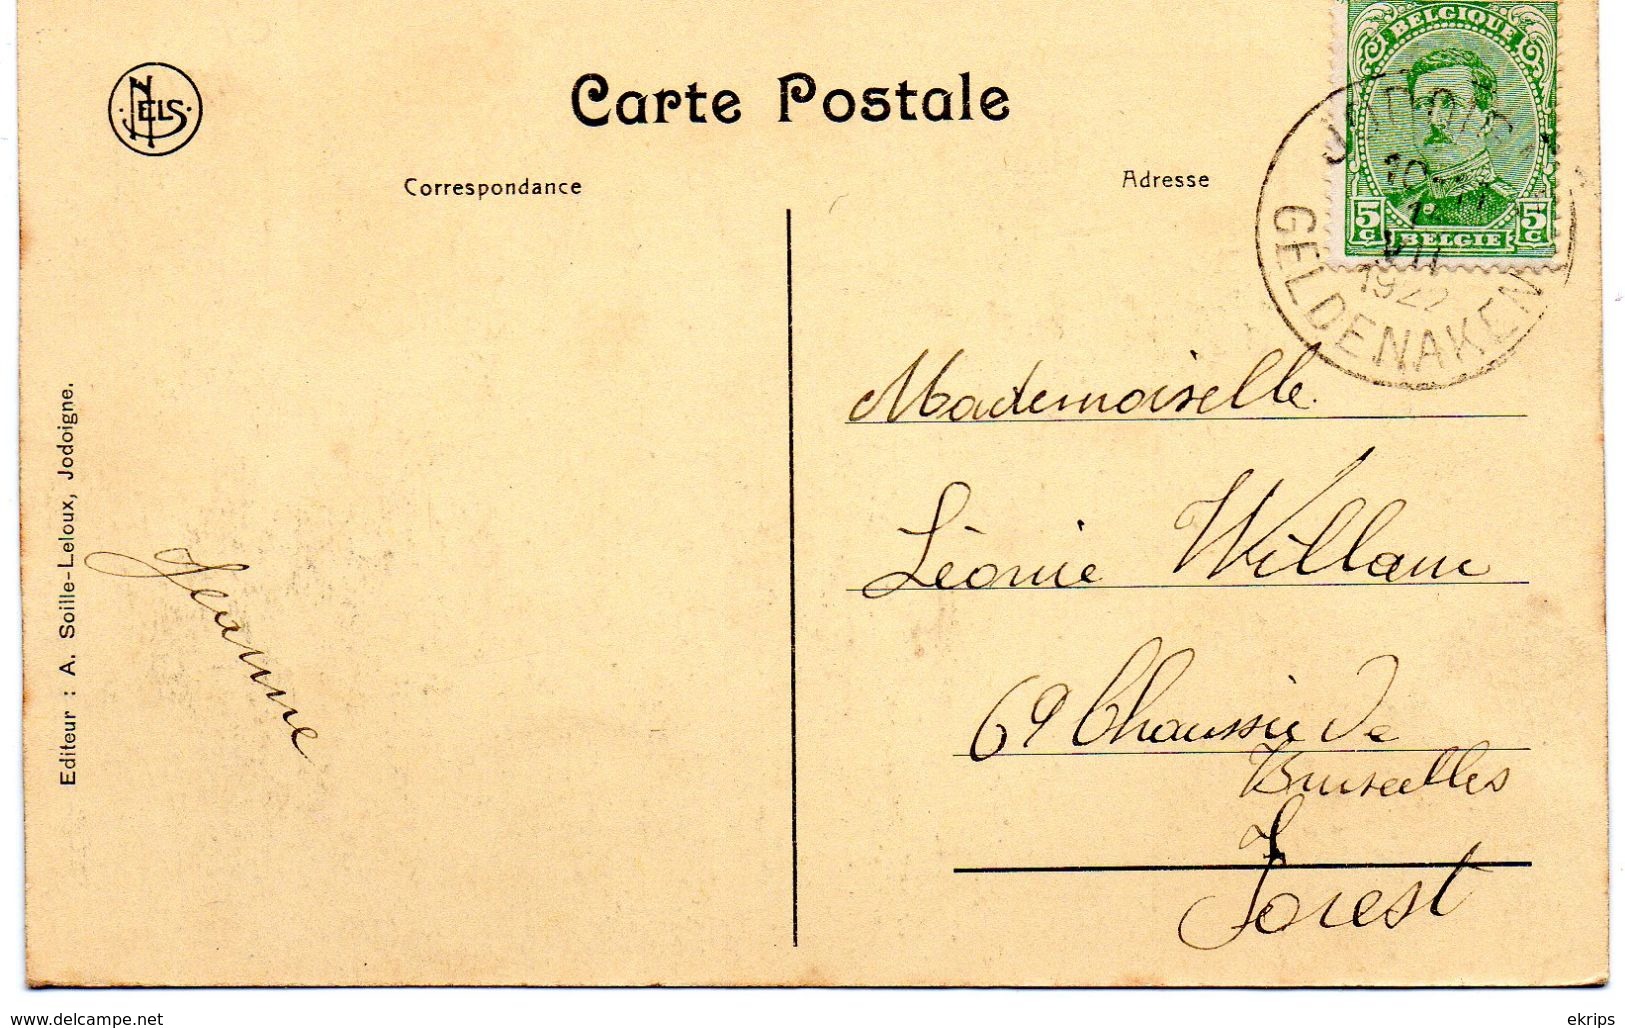 NELS
Carte Postale
Correspondance
Adresse
BELGIQUE
5c 5c
BELGIE
GELDENAKEN
VII
1922
Mademoiselle
Léonie Willam
69 Chaussée de
Bruxelles
Forest
Jeanne
Editeur : A. Soille-Leloux, Jodoigne.
www.delcampe.net
ekrips